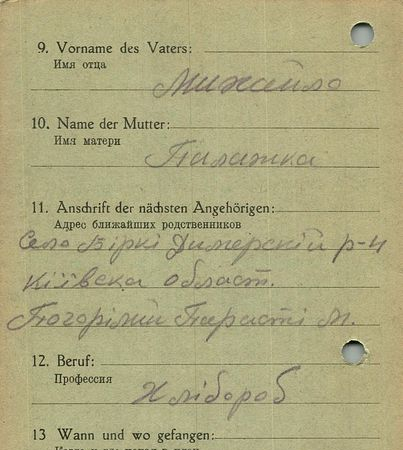 9. Vorname des Vaters:
Имя отца
Михайло
10. Name der Mutter:
Имя матери
Палажка
11. Anschrift der nächsten Angehörigen:
Адрес ближайших родственников
Село Біркі Димерскій р-н
Київска област.
Погорілий Парасті М.
12. Beruf:
Профессия
Хлібороб
13 Wann und wo gefangen: